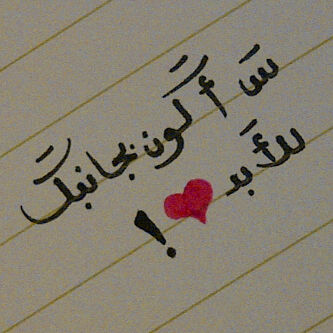 سَ أكون بجانبكَ
للأبد ❤!